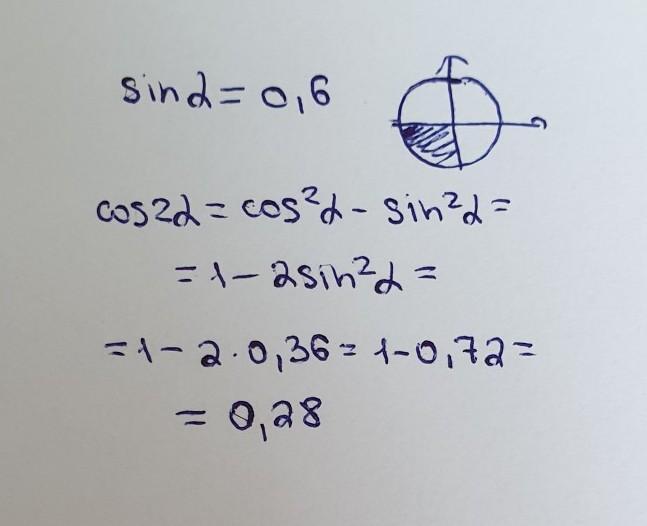 sinα = 0,6
cos2α = cos²α - sin²α =
= 1 - 2sin²α =
= 1 - 2 · 0,36 = 1 - 0,72 =
= 0,28